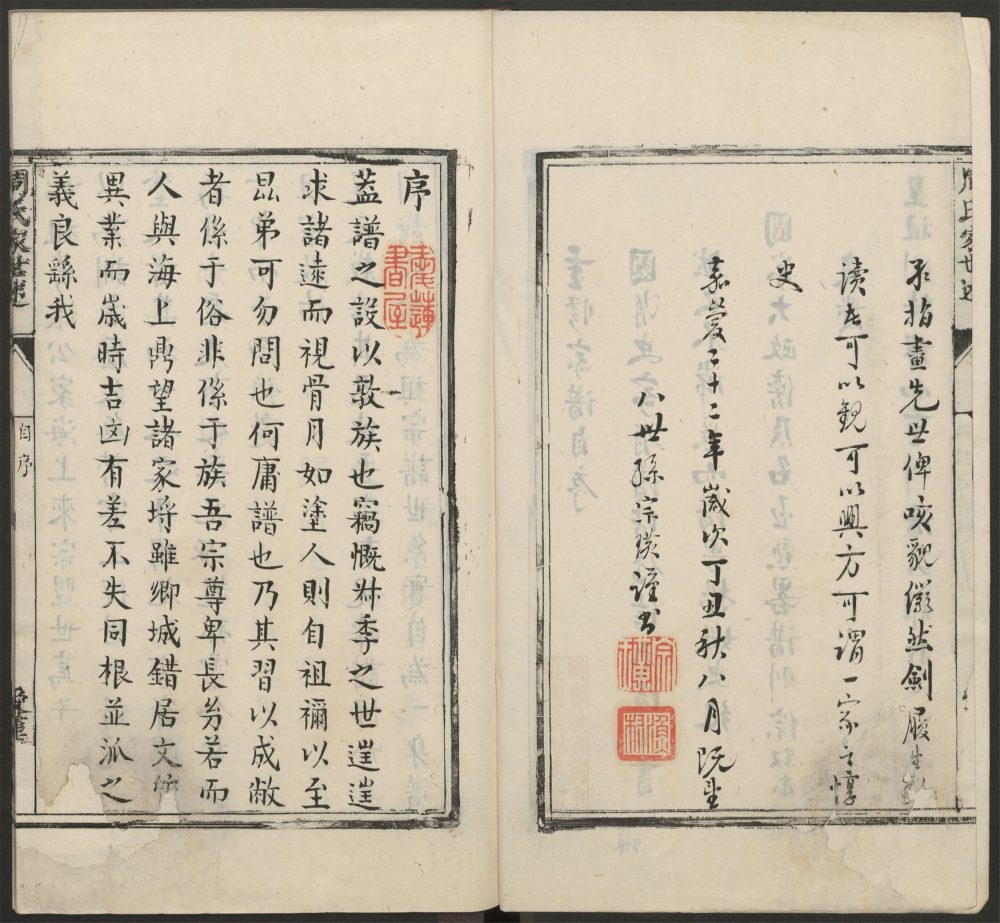 示指畫先世俾咳貌儼然劍履生動
讀者可以觀可以興方可謂一家之惇
史
嘉慶二十二年歲次丁丑秋八月既望
八世孫宗璜謹書
周氏家世述
序
蓋譜之設以敦族也竊慨叔季之世逞逞
求諸遠而視骨月如塗人則自祖禰以至
昆弟可勿問也何庸譜也乃其習以成敝
者係于俗非係于族吾宗尊卑長㓜若而
人與海上鼎望諸家埒雖鄉城錯居文
異業而歲時吉凶有差不失同根並派之
義良繇我
周氏家世述
自序